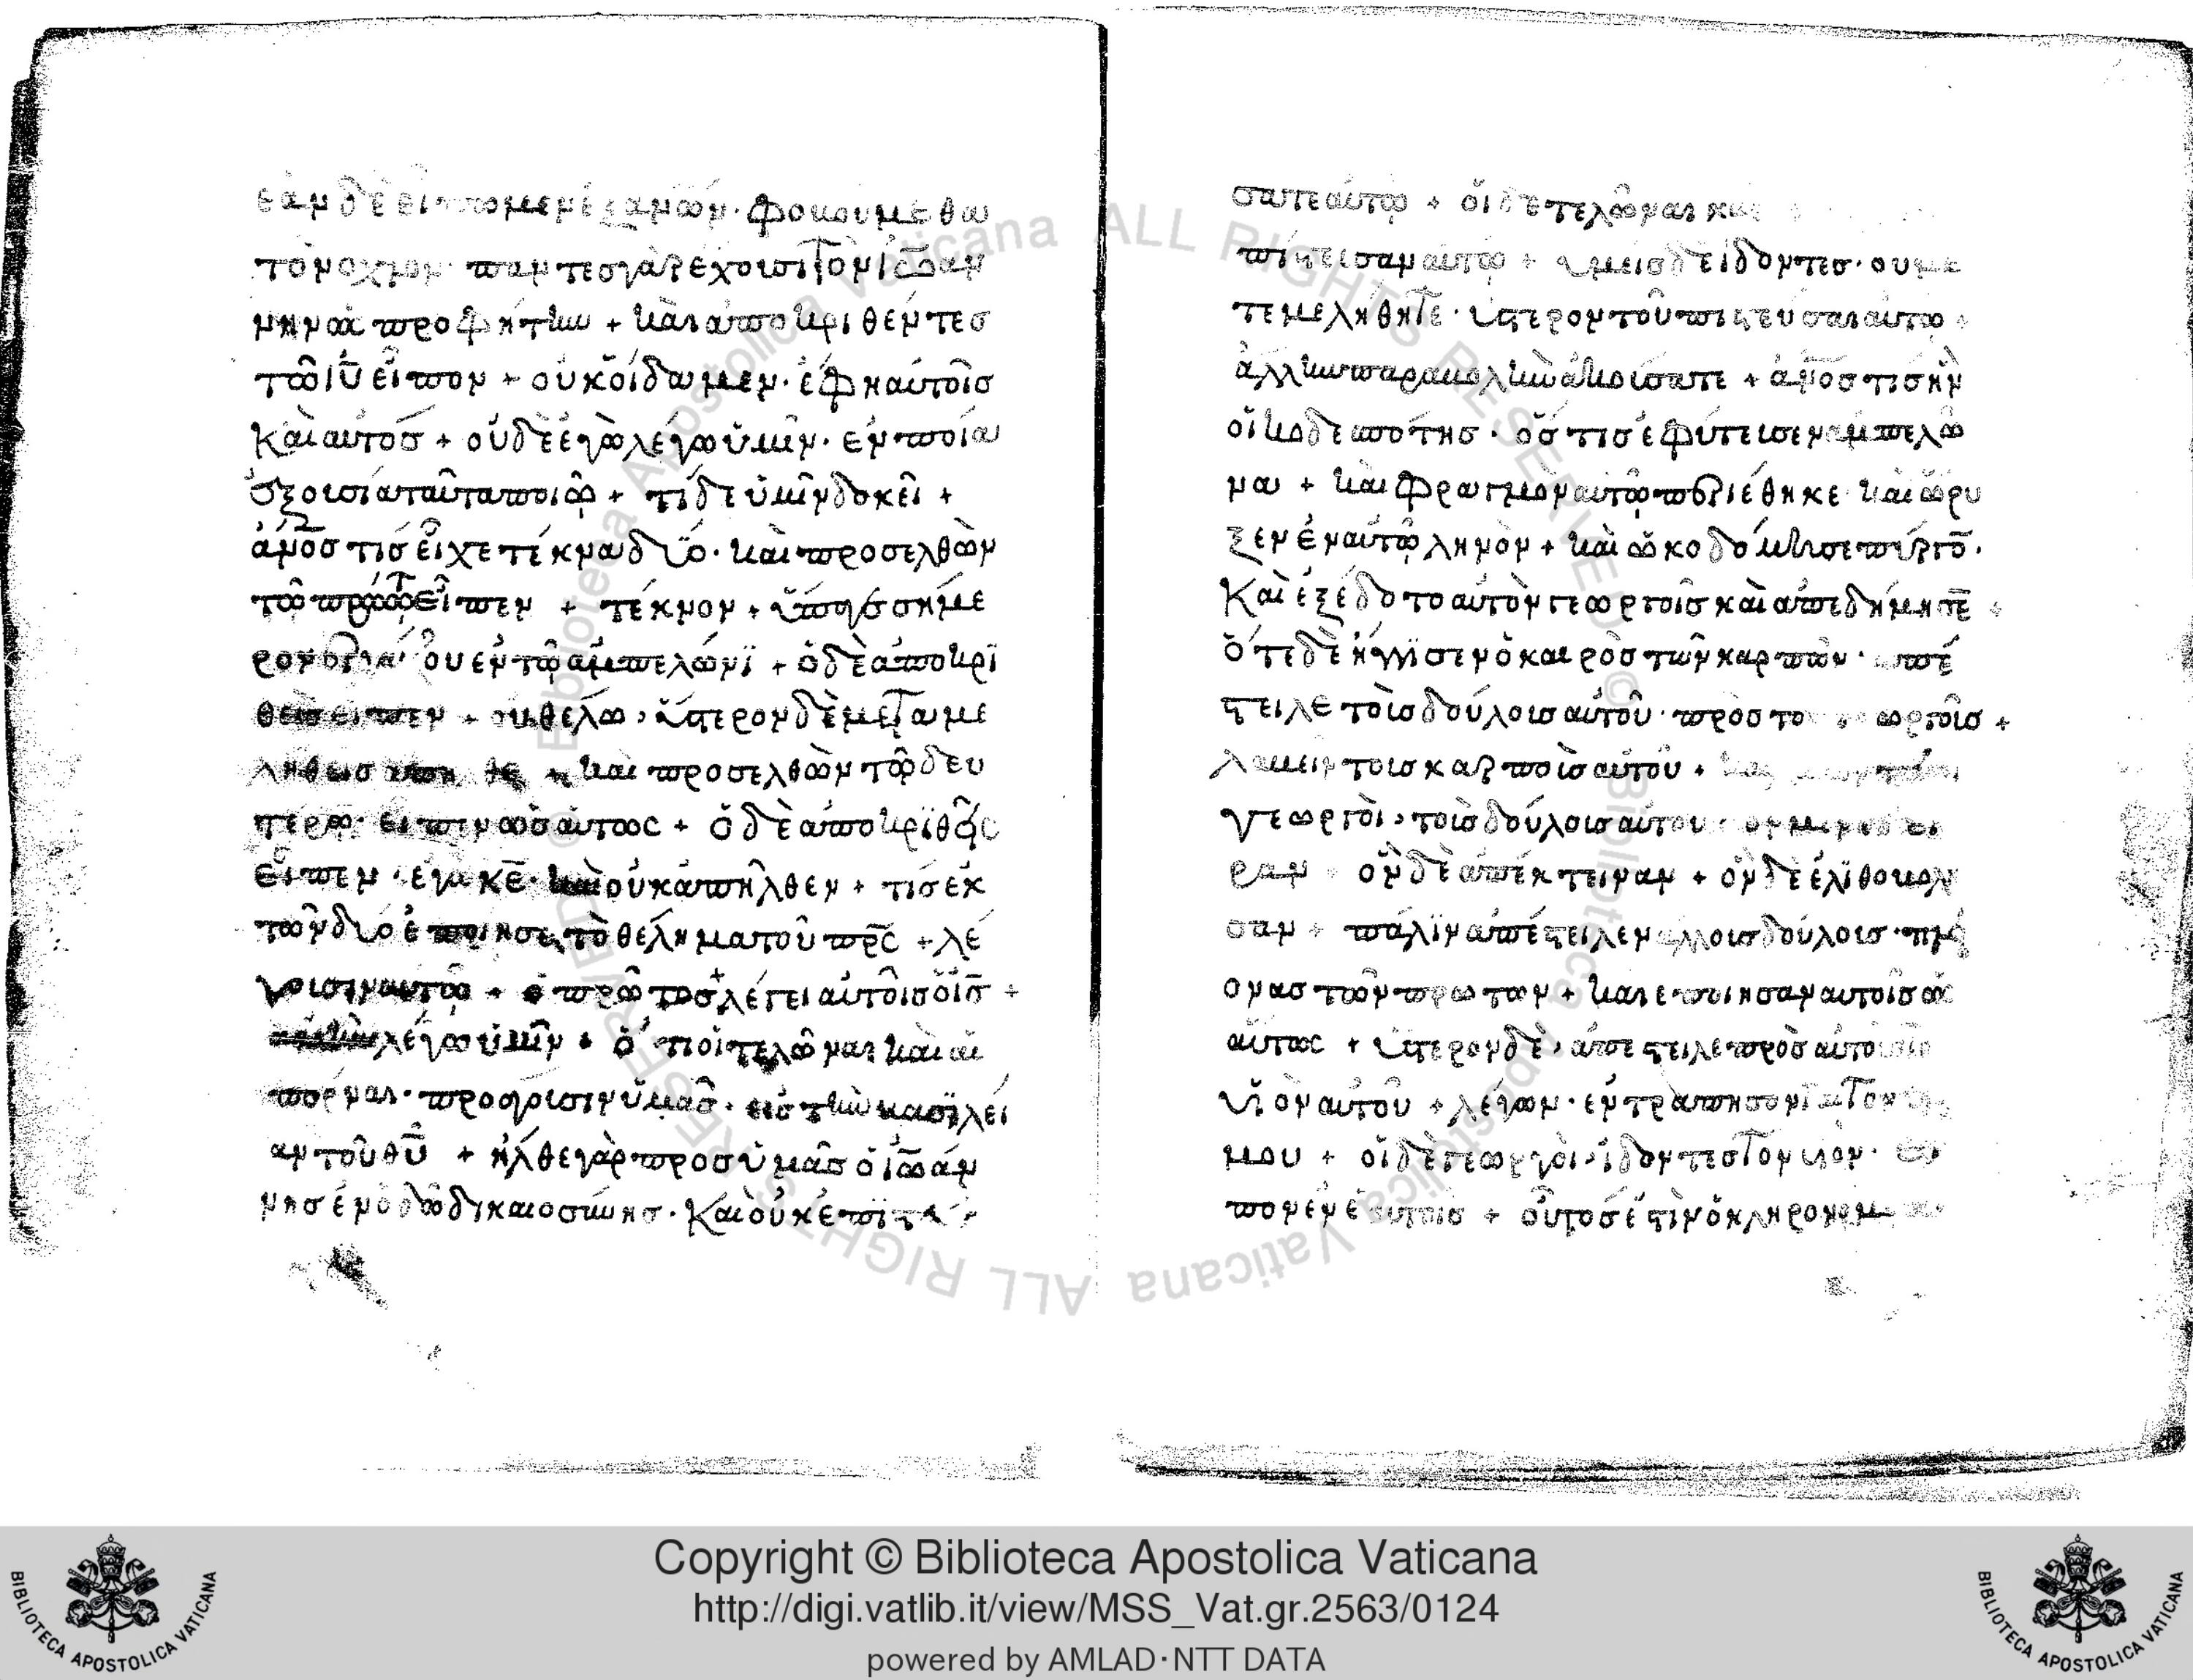 ἐὰν δὲ εἴπομεν ἐξ ἀνων· φοκουμεθα
τὸν οχλον· παντεσ γὰρ ἐχοισι τὸν ἰωαν
νην ὡσ προφήτην + καὶ αποκριθέντεσ
τῶ ιυ εἶπον + οὐκ οἴδαμεν· ἐφη αὐτοῖσ
Καὶ αυτὸσ + οὐδὲ ἐγὼ λέγω ὑμῖν· ἐν ποία
ἐξοισία ταῦτα ποιῶ + τί δε ὑμῖν δοκεῖ +
ἀνοσ τισ εἶχε τέκνα δύο· καὶ προσελθὼν
τῶ πρώτω εἶπεν + τέκνον + ὕπαγε σήμε
ρον ἐργα ου ἐν τῶ ἀμπελώνϊ + ὁ δὲ ἀποκρϊ
θεὶσ εἶπεν + οὐ θέλω, ὕστερον δὲ μετα με
ληθεισ + καὶ προσελθὼν τῶ δευ
τέρω· εἶπεν ὡσαύτωσ + ὁ δὲ ἀποκρϊθεὶς
εἶπεν· ἐγὼ κε· καὶ οὐκ ἀπῆλθεν + τίσ ἐκ
τῶν δύο ἐποιησε τὸ θέλημα τοῦ πρς + λέ
γοισιν αυτῶ + ὁ πρῶτοσ + λέγει αὐτοῖσ ὁ ισ +
ἀμὴν λέγω ὑμῖν + ὅτι οἱ τελῶναι καὶ αἱ
πόρναι· προάγοισιν ὑμᾶσ· εἰσ τὴν κασϊλεί
αν τοῦ θυ + ἦλθε γὰρ προσ ὑμᾶσ ὁ ἰωάν
νησ ἐν ὁδῶ δικαιοσύνησ· Καὶ οὐκ ἐπϊστε
σατε αὐτῶ + οἱ δε τελῶναι και
πίστεισαν αὐτῶ + ὑμεισ δε ἰδοντεσ· ου με
τεμελήθητε· ὕστερον τοῦ πιστευσαι αυτω +
ἀλλην παρακολην ἀκοίσατε + ἀνοσ τισ ἦν
οἰκοδεσπότησ· ὅστισ ἐφύτεισεν ἀμπελῶ
να + καὶ φραγμὸν αὐτῶ περιέθηκε καὶ ὤρυ
ξεν ἐν αὐτῶ ληνὸν + καὶ ὠκοδόμησε πύργο·
Καὶ ἐξέδοτο αὐτὸν γεωργοῖσ καὶ ἀπεδήμησε +
ὅτε δὲ ἤγγϊσεν ὁ καιρὸσ τῶν καρπῶν· απέ
στειλε τοὶσ δούλοισ αὐτοῦ· πρὸσ το γεωργοῖσ +
λακειν τοισ καρποὶσ αὐτοῦ +
γεωργοὶ, τοὶσ δούλοισ αὐτου· ον μεν εδει
ραν ὃν δὲ ἀπέκτειναν + ὃν δὲ ἐλϊθοκολ
σαν + πάλϊν ἀπέστειλεν αλλοισ δούλοισ· πλεί
ονασ τῶν πρωτων + και εποιησαν αυτοῖσ ὡσ
αύτως + ὕστερον δὲ, ἀπεστειλε πρὸσ αυτουσ το
υἱὸν αὐτοῦ + λέγων· ἐντραπησονται τον
μου + οἱ δὲ γεωργοὶ, ἰδοντεσ τον υιον· ει
πον εν ἑαυτοῖσ + οὗτοσ ἐστὶν ὁ κληρονομ
Copyright © Biblioteca Apostolica Vaticana
http://digi.vatlib.it/view/MSS_Vat.gr.2563/0124
powered by AMLAD·NTT DATA
BIBLIOTECA APOSTOLICA VATICANA
BIBLIOTECA APOSTOLICA VATICANA